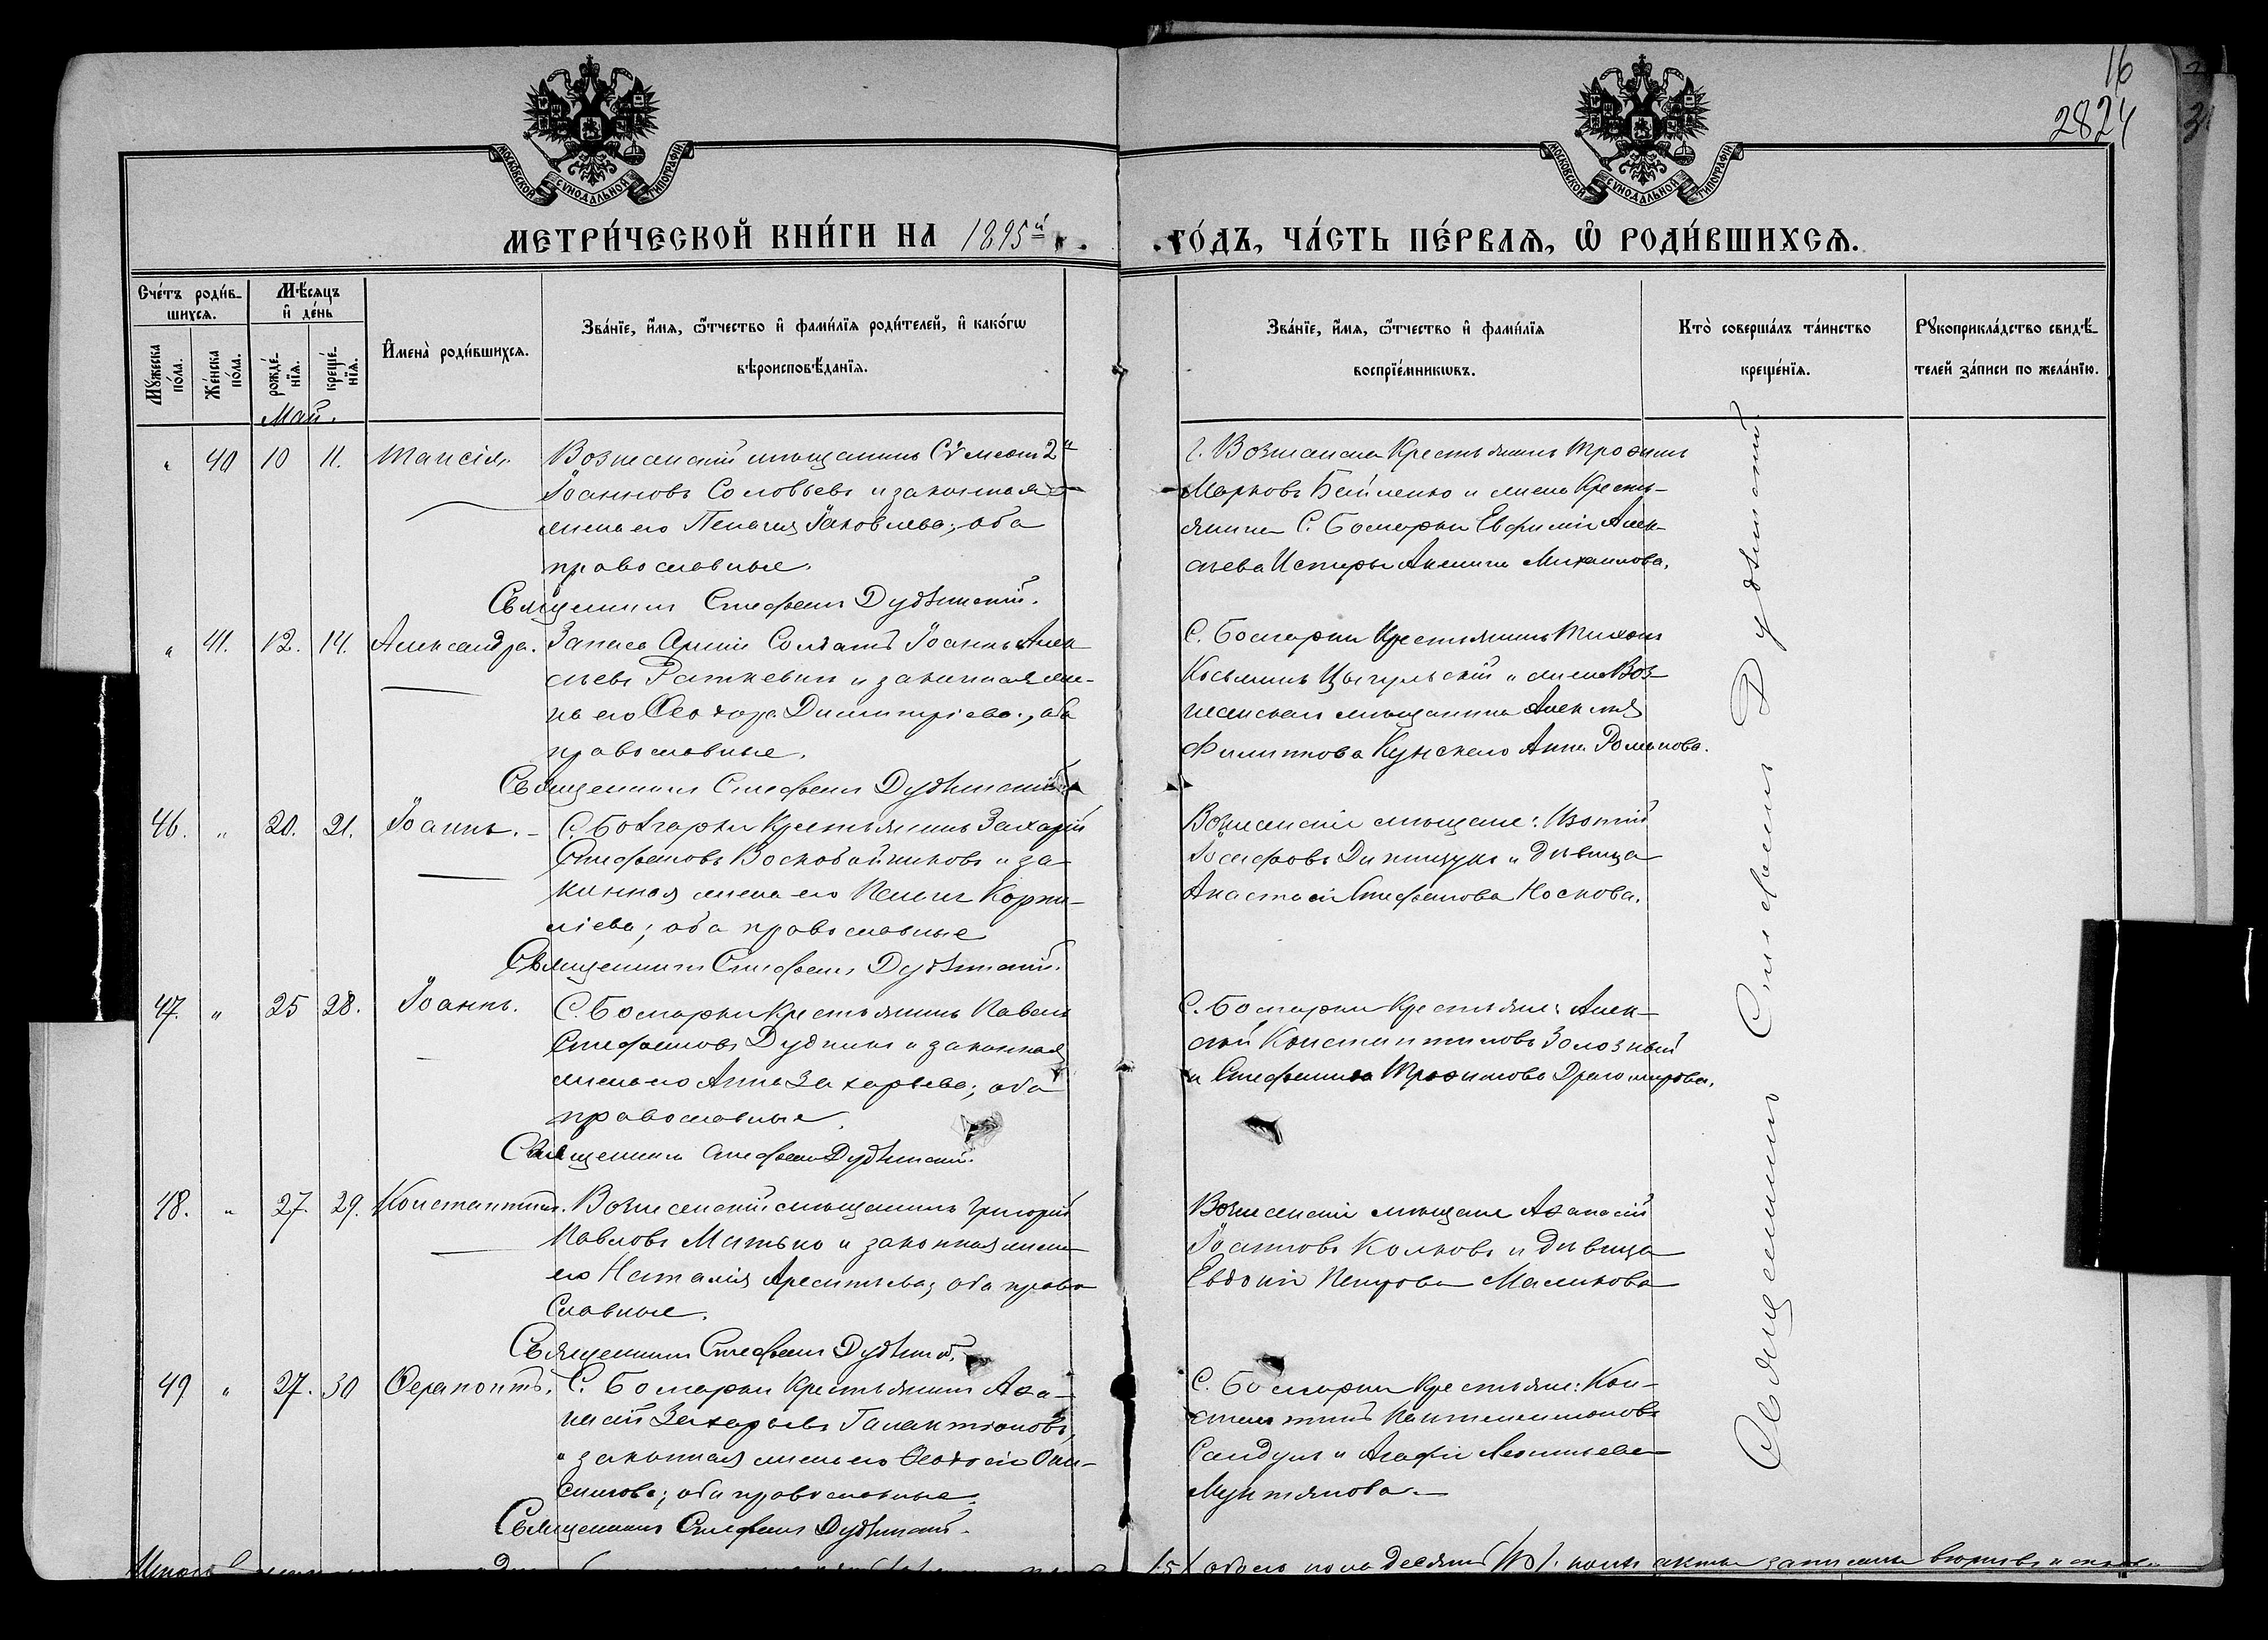 16
2824
МОСКОВСКОЙ СѴНОДАЛЬНОЙ ТИПОГРАФІИ
МОСКОВСКОЙ СѴНОДАЛЬНОЙ ТИПОГРАФІИ
МЕТРИ́ЧЕСКОЙ КНИ́ГИ НА 1895й
ГО́ДЪ, ЧА́СТЬ ПЕ́РВАѦ, Ѡ҆ РОДИ́ВШИХСѦ.
Сче́тъ роди́в-
шихсѧ.
Мѣ́сѧцъ
и҆ де́нь
Мꙋ́жеска
по́ла.
Же́нска
по́ла.
рожде́-
нїѧ.
креще́-
нїѧ.
И҆мена̀ роди́вшихсѧ.
Зва́нїе, и҆́мѧ, ѻ҆́тчество и҆ фами́лїѧ роди́телей, и҆ како́гѡ
вѣроисповѣ́данїѧ.
Зва́нїе, и҆́мѧ, ѻ҆́тчество и҆ фами́лїѧ
воспрїе́мникѡвъ.
Кто̀ соверша́лъ та́инство
креще́нїѧ.
Рꙋкоприкла́дство свидѣ́-
телей за́писи по жела́нїю.
Май.
" 40 10 11. Таисія. Вознесенскій мѣщанинъ Сѵмеонъ 2й
Іоанновъ Соловьевъ и законная
жена его Пелагія Іаковлева; оба
православные.
Священникъ Стефанъ Дудѣнскій.
Г. Вознесенска Крестьянинъ Трофимъ
Марковъ Бойченко и жена Кресть-
янина С. Болгарки Евфимія Алек-
сѣева Истиры Акилина Михаилова.
" 41. 12. 14. Александра. Запаса Арміи Солдатъ Іоаннъ Алек-
сѣевъ Раткевичъ и законная же-
на его Ѳеодора Димитріева; оба
православные.
Священникъ Стефанъ Дудѣнскій.
С. Болгарки Крестьянинъ Тихонъ
Косьминъ Цыгульскій и жена Воз-
несенскаго мѣщанина Алексѣя
Филиппова Кунскаго Анна Романова.
46. " 20. 21. Іоаннъ. С. Болгарки Крестьянинъ Захарій
Стефановъ Воскобойниковъ и за-
конная жена его Пелагія Корни-
ліева; оба православные
Священникъ Стефанъ Дудѣнскій.
Вознесенскіе мѣщане: Изотій
Іосифовъ Дипищукъ и дѣвица
Анастасія Стефанова Носкова.
47. " 25 28. Іоаннъ. С. Болгарки Крестьянинъ Павелъ
Стефановъ Дудникъ и законная
жена его Анна Захарьева; оба
православные.
Священникъ Стефанъ Дудѣнскій.
С. Болгарки Крестьяне: Алек-
сѣй Константиновъ Золозный
и Стефанида Трофимова Драгомирова.
48. " 27. 29. Константинъ. Вознесенскій мѣщанинъ Григорій
Павловъ Матько и законная жена
его Наталія Арсентьева; оба право-
славные.
Священникъ Стефанъ Дудѣнскій.
Вознесенскіе мѣщане Аѳанасій
Іоанновъ Колковъ и дѣвица
Евдокія Петрова Маликова
49 " 27. 30 Ѳерапонтъ. С. Болгарки Крестьянинъ Аѳа-
насій Захарьевъ Галактіоновъ,
и законная жена его Ѳеодосія Они-
симова; оба православные.
Священникъ Стефанъ Дудѣнскій.
С. Болгарки Крестьяне: Кон-
стантинъ Пантелеимоновъ
Сандулъ и Агафія Леонтьева
Мунтянова.
Священникъ Стефанъ Дудѣнскій
обоего пола десять (10). акты записаны вѣрно